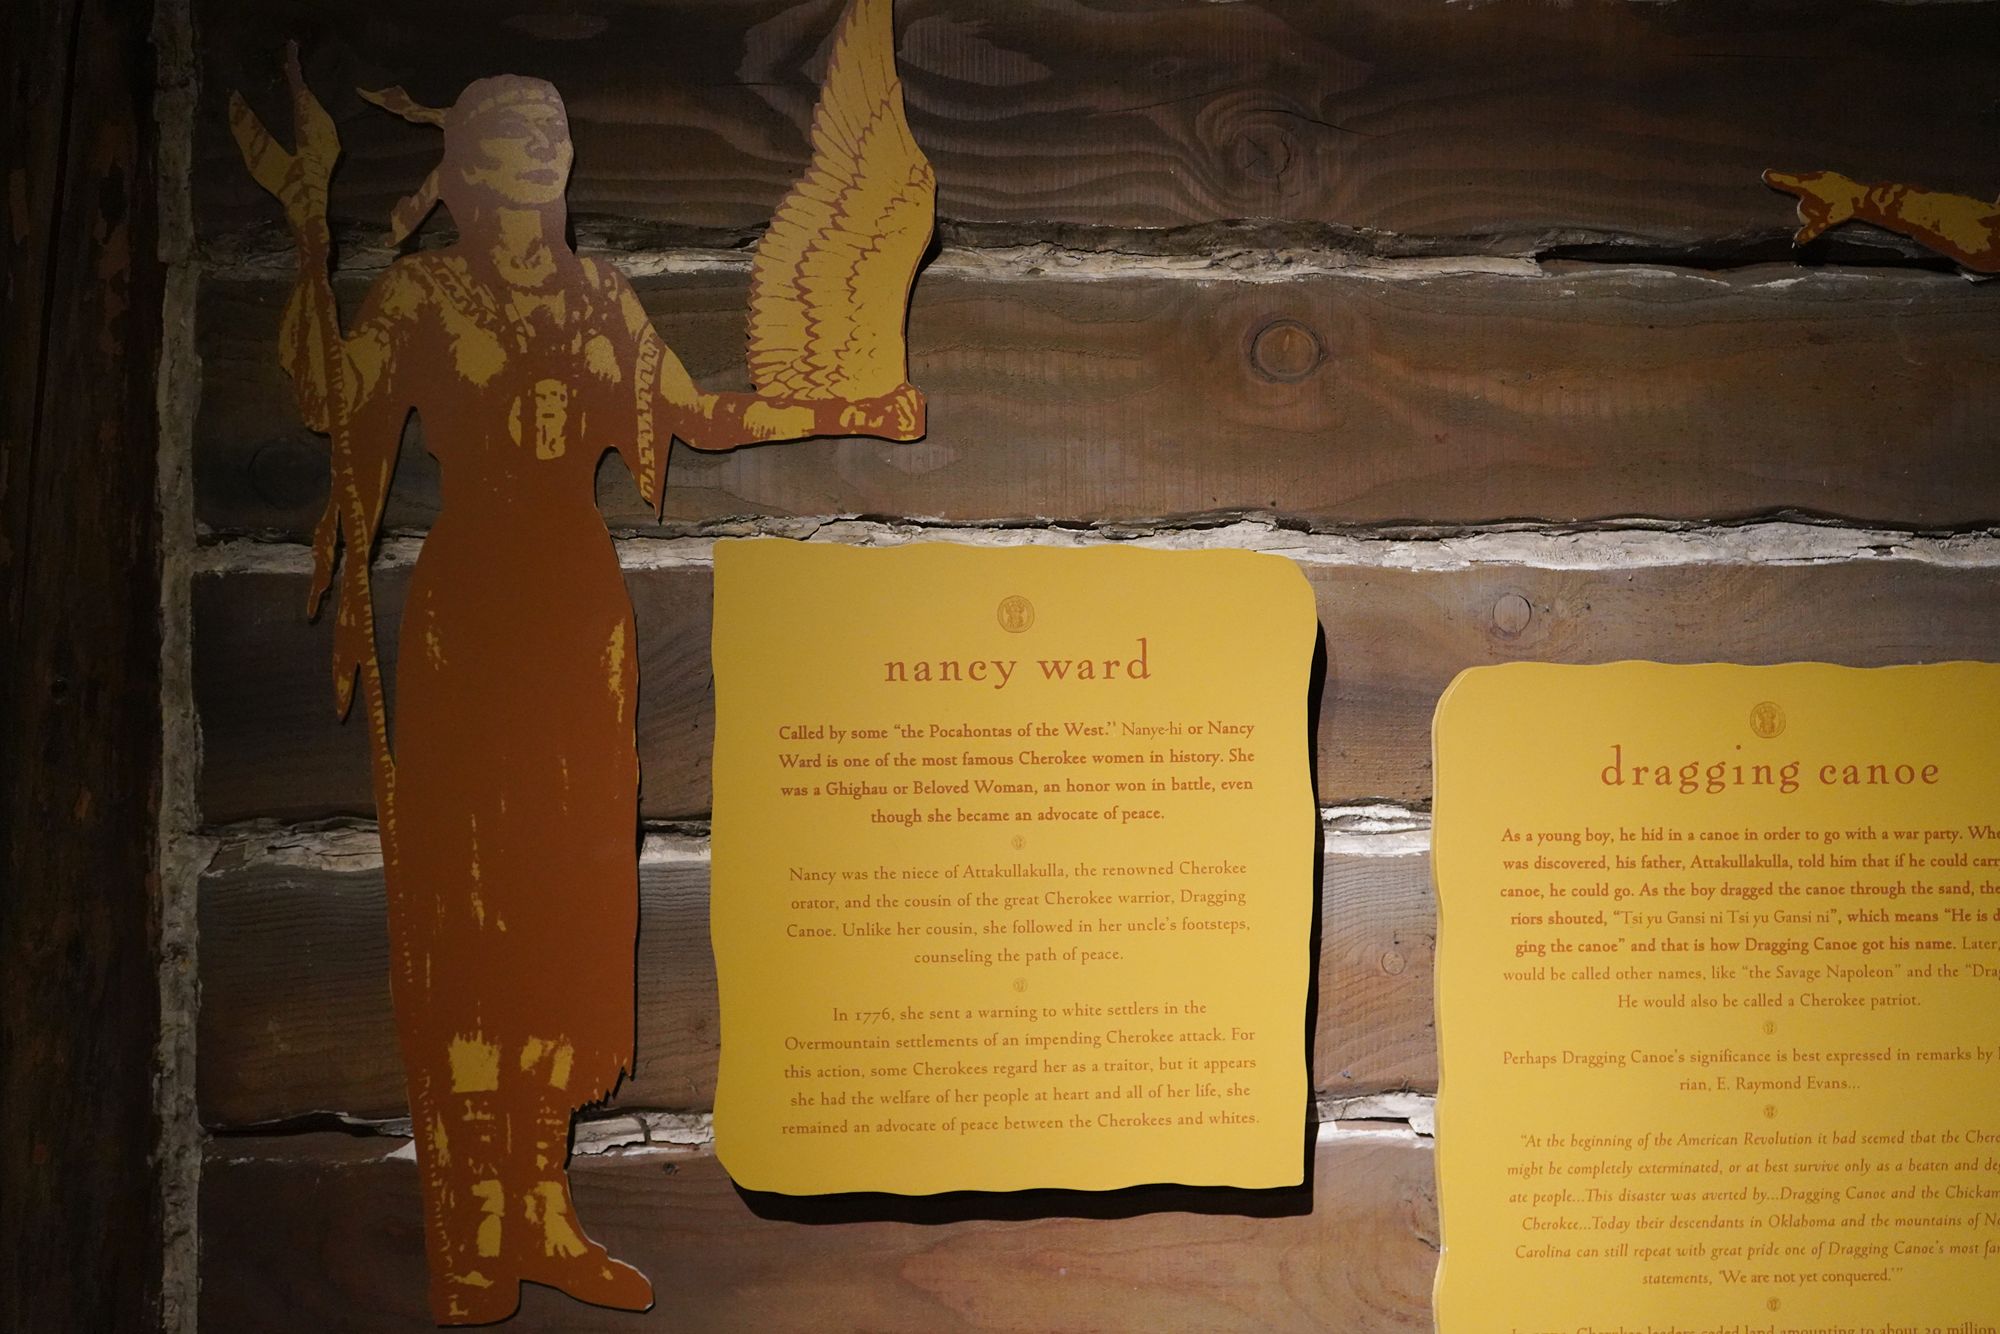 nancy ward
Called by some “the Pocahontas of the West.” Nanye-hi or Nancy
Ward is one of the most famous Cherokee women in history. She
was a Ghighau or Beloved Woman, an honor won in battle, even
though she became an advocate of peace.
Nancy was the niece of Attakullakulla, the renowned Cherokee
orator, and the cousin of the great Cherokee warrior, Dragging
Canoe. Unlike her cousin, she followed in her uncle's footsteps,
counseling the path of peace.
In 1776, she sent a warning to white settlers in the
Overmountain settlements of an impending Cherokee attack. For
this action, some Cherokees regard her as a traitor, but it appears
she had the welfare of her people at heart and all of her life, she
remained an advocate of peace between the Cherokees and whites.
dragging canoe
As a young boy, he hid in a canoe in order to go with a war party.
was discovered, his father, Attakullakulla, told him that if he could
canoe, he could go. As the boy dragged the canoe through the sand,
riors shouted, “Tsi yu Gansi ni Tsi yu Gansi ni”, which means “He is
ging the canoe” and that is how Dragging Canoe got his name. Later,
would be called other names, like “the Savage Napoleon” and the
He would also be called a Cherokee patriot.
Perhaps Dragging Canoe's significance is best expressed in remarks by
rian, E. Raymond Evans...
“At the beginning of the American Revolution it had seemed that the
might be completely exterminated, or at best survive only as a beaten and
ate people...This disaster was averted by...Dragging Canoe and the
Cherokee...Today their descendants in Oklahoma and the mountains of
Carolina can still repeat with great pride one of Dragging Canoe's most
statements, ‘We are not yet conquered.’”
Cherokee leaders ceded land amounting to about 20 million